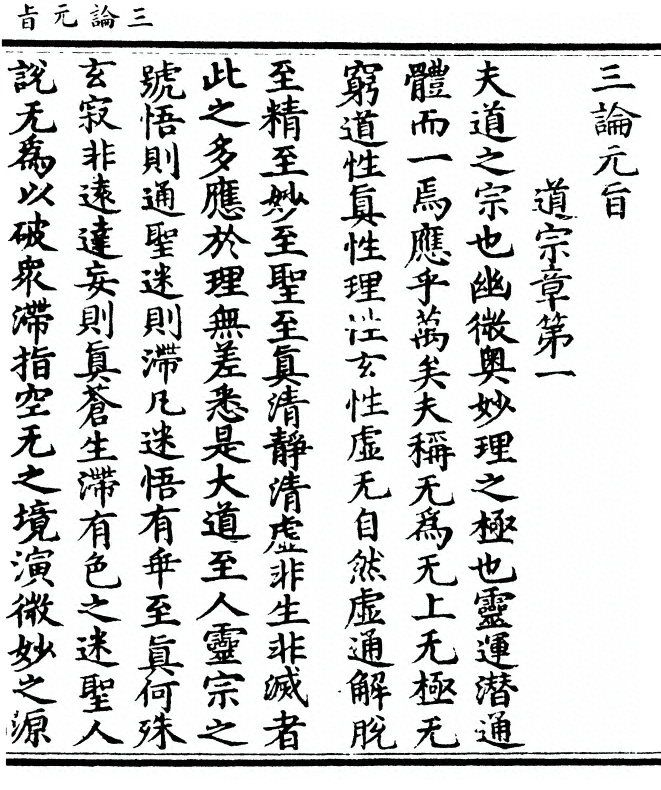 三論元旨
三論元旨
道宗章第一
夫道之宗也幽微奥妙理之極也靈運潛通
體而一焉應乎萬矣夫稱无爲无上无極无
窮道性真性理性玄性虛无自然虛通解脫
至精至妙至聖至真清靜清虛非生非滅者
此之多應於理無差悉是大道至人靈宗之
號悟則通聖迷則滯凡迷悟有乖至真何殊
玄寂非遠達妄則真蒼生滯有色之迷聖人
說无爲以破衆滯指空无之境演微妙之源